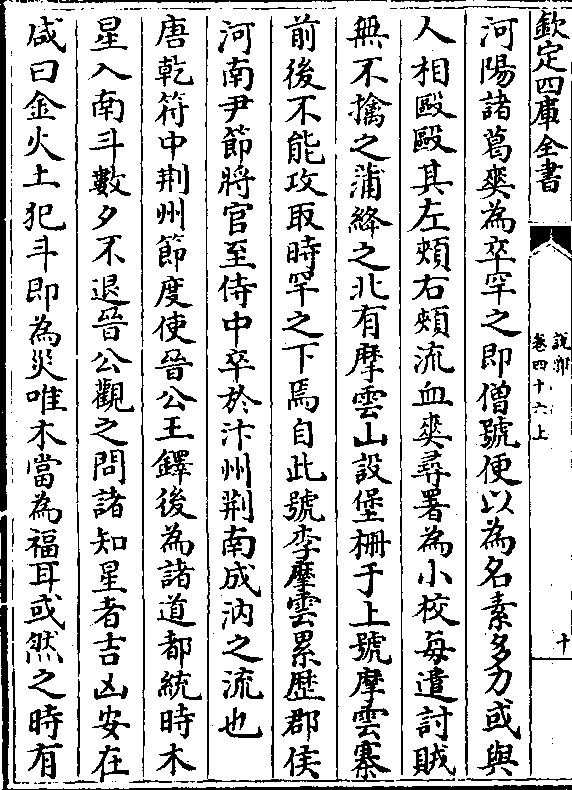 欽定四庫全書
說郛
卷四十六上
十
河陽諸葛爽為卒罕之即僧號便以為名素多力或與
人相毆毆其左頰右頰流血爽尋署為小校每遣討賊
無不擒之蒲絳之北有摩雲山設堡柵于上號摩雲寨
前後不能攻取時罕之下焉自此號李摩雲累歴郡侯
河南尹節將官至侍中卒於汴州荆南成汭之流也
唐乾符中荆州節度使晉公王鐸後為諸道都統時木
星入南斗數夕不退晉公觀之問諸知星者吉凶安在
咸曰金火土犯斗即為災唯木當為福耳或然之時有